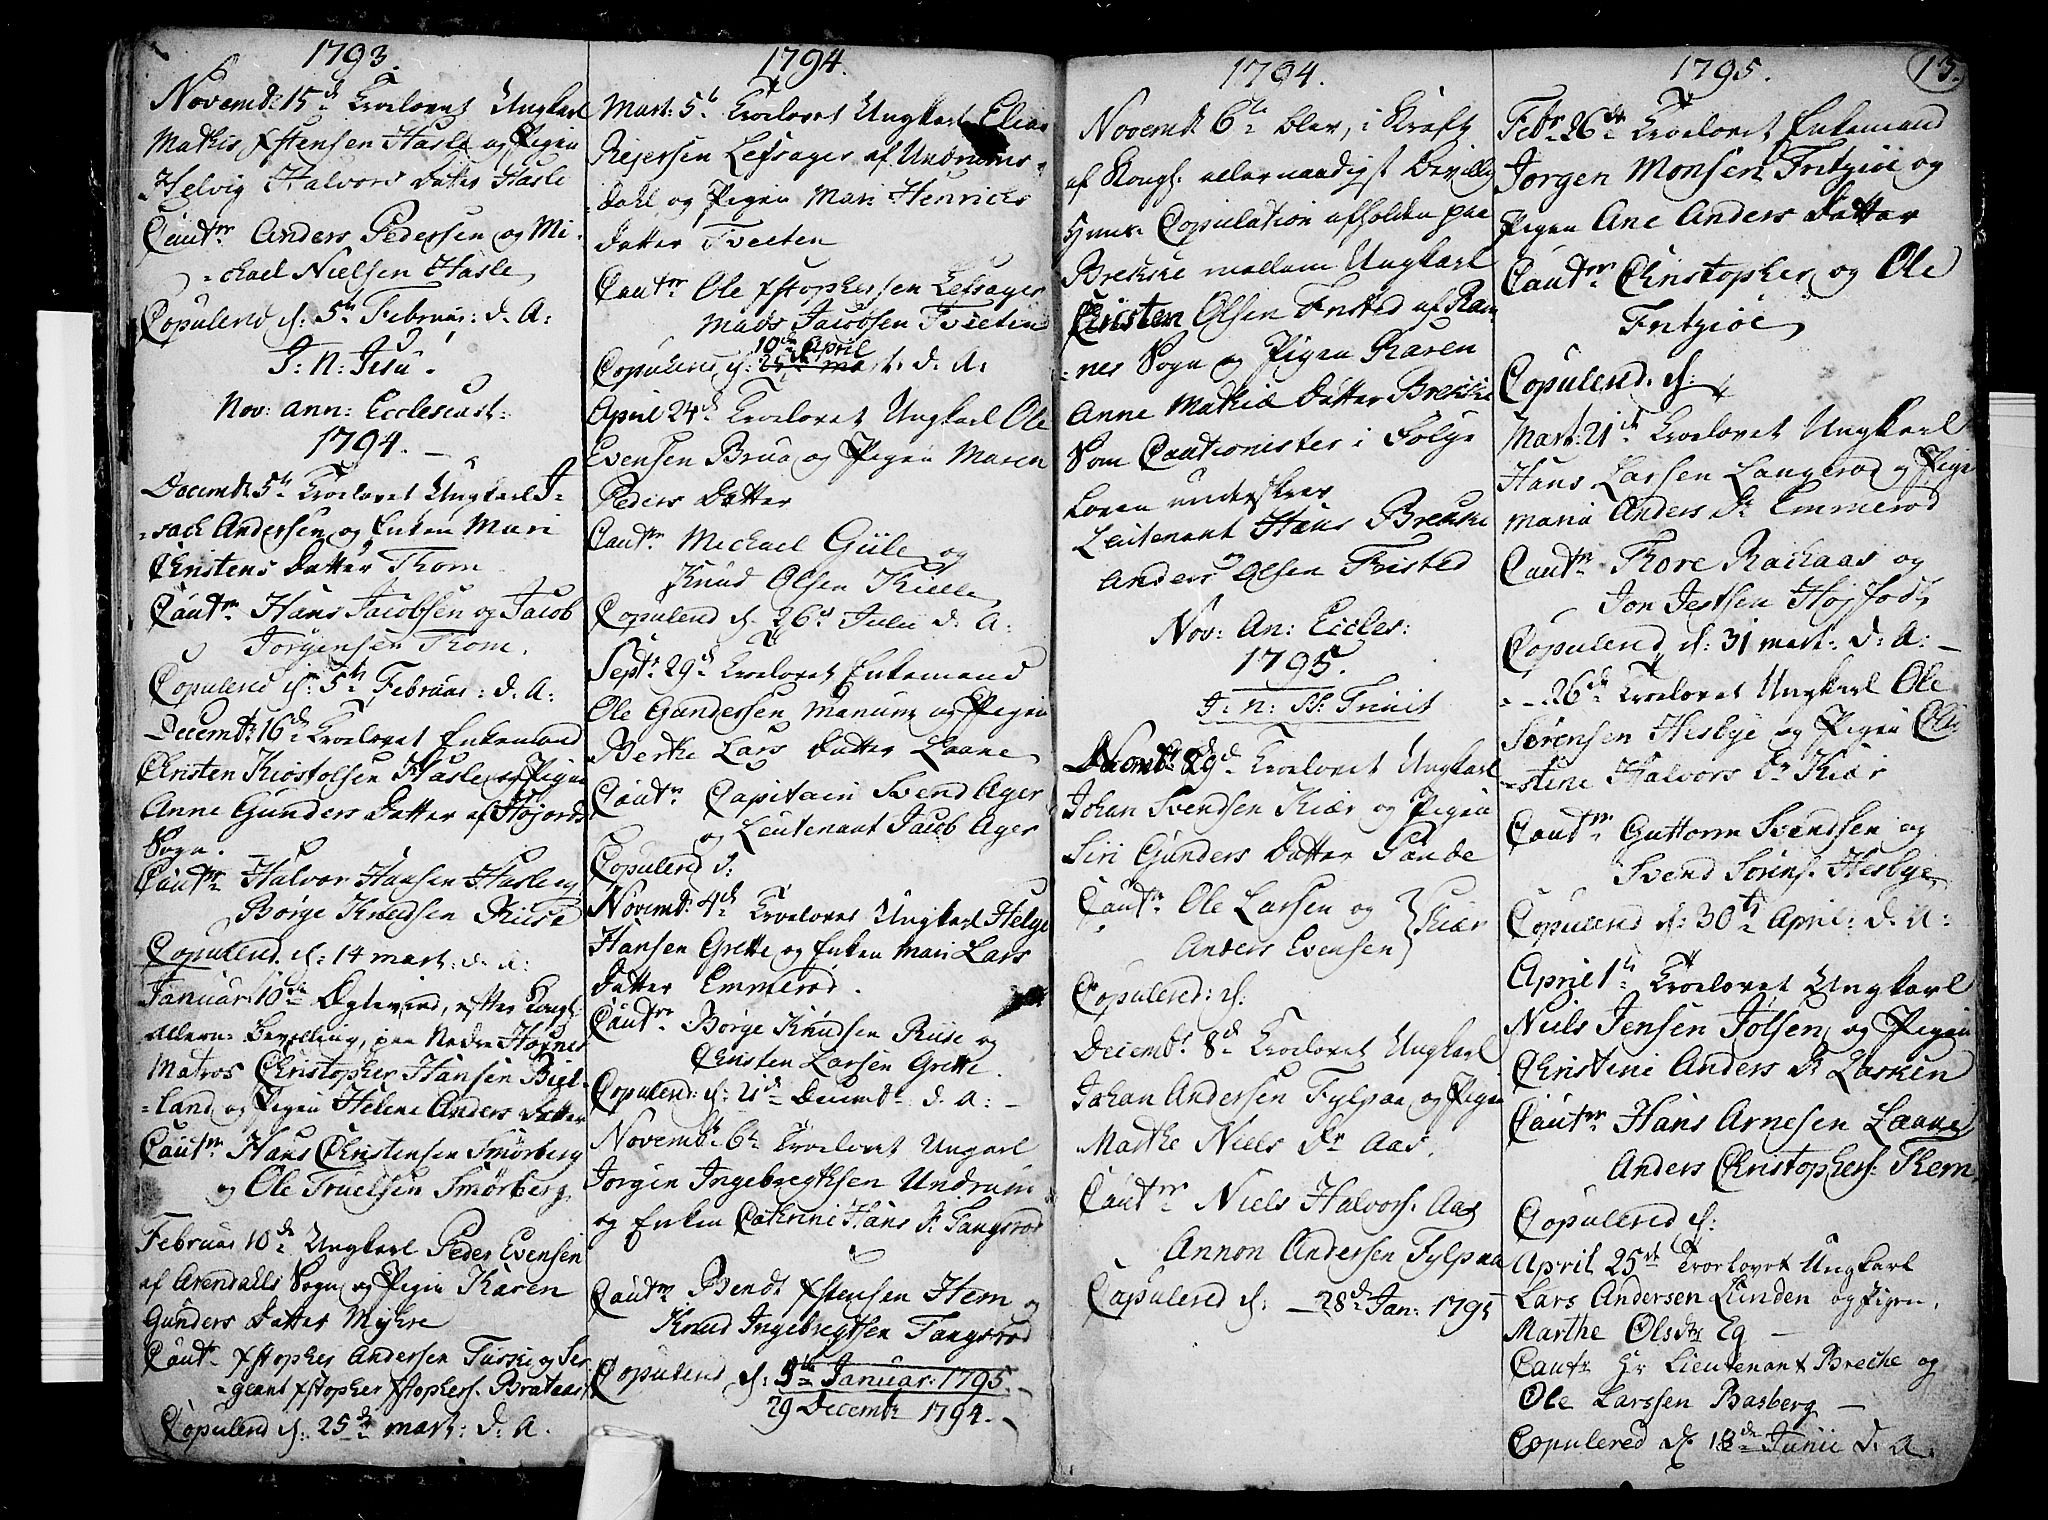 1793.
Novemb: 15de Troelovet Ungkarl
Mathis Xstensen Hasle og Pigen
Helvig Halvors Datter Hasle
Cautnr Anders Pedersen og Mi-
=chael Nielsen Hasle
Copulered d: 5te Februar: d. A:
J: N: Jesu!
Nov: ann: Ecclesiast:
1794.
Decemb: 5te Troelovet Ungkarl I-
=sach Andersen og Enken Mari
Christens Datter Thom
Cautnr Hans Jacobsen og Jacob
Jørgensen Thom.
Copulered d: 5te Februar: d. A:
Decemb: 16de Troelovet Enkemand
Christen Kiostolsen Hasle og Pigen
Anne Gunders Datter af Højords
Sogn.
Cautnr Halvor Hansen Hasle og
Børge Knudsen Riise
Copulered d: 14 mart: d. A:
Januar: 10de Egtevied, efter Kongl:
allern: Bevilling, paa Nedre Højnes
Matros Christopher Hansen Biel-
=land og Pigen Helene Anders Datter
Cautnr Hans Christensen Smørberg
og Ole Truelsen Smørberg
Februar 10de Ungkarl Peder Evensen
af Arendalls Sogn og Pigen Karen
Gunders Datter Myhre
Cautnr Xstopher Andersen Turskie og Ser-
=geant Xstopher Xstophers: Brataas
Copulered d: 25de mart: d: A.
1794.
Mart: 5te Troelovet Ungkarl Elias
Rejersen Lefsager af Undrums-
=dahl og Pigen Mari Henrichs
Datter Tveeten
Cautnr Ole Xstophersen Lefsager
Mads Jacobsen Tveeten
10de April
Copulered d: 25de mart. d. A.
April 24de Troelovet Ungkarl Ole
Evensen Brua og Pigen Maren
Peders Datter
Cautnr Michael Giile og
Knud Olsen Kielle
Copulered d. 26de Julii d. A:
Septr 29de Troelovet Enkemand
Ole Gundersen Manum og Pigen
Berthe Lars Datter Laane
Cautnr Capitain Svend Ager
og Leutenant Jacob Ager
Copulered d:
Novemb: 4de Troelovet Ungkarl Helge
Hansen Grette og Enken Mari Lars
Datter Emmerød.
Cautnr Børge Knudsen Riise og
Christen Larsen Grette.
Copulered: d: 21de Decemb: d. A: –
Novemb: 6te Troelovet Ungkarl
Jørgen Ingebregtsen Undrum
og Enken Cathrini Hans Dr Tangsrød
Cautnr Bendt Xstensen Hem og
Knud Ingebregtsen Tangsrød
Copulered d: 5te Januar: 1795.
29 Decembr 1794.
1794.
Novemb 6te blev, i Kraft
af Kongl. allernaadigst Bevilling
Huus Copulation afholden paa
Brekke mellem Ungkarl
Christen Olsen Fristed af Ram-
=nes Sogn og Pigen Karen
Anne Mathiæ Datter Brekke
Som Cautionister i Følge
Loven underskrev
Leutenant Hans Brekke
og
Anders Olsen Fristed
Nov: An: Eccles:
1795.
J: n: SS: Trinit
Novemb: 29de Troelovet Ungkarl
Johan Svendsen Kiær og Pigen
Siri Gunders Datter Sande
Cautnr Ole Larsen og
Anders Evensen } Kiær
Copulered: d:
Decemb: 8de Troelovet Ungkarl
Johan Andersen Fylpaa og Pigen
Marthe Niels Dr Aas.
Cautnr Niels Halvors: Aas
Annon Andersen Fylpaa
Copulered d: – 28de Jan: 1795
1795.
13.
Febr 26de Troelovet Enkemand
Jørgen Monsen Fritzøe og
Pigen Ane Anders Datter
Cautnr Christopher og Ole
Fritzøe
Copulered. d:
Mart: 21de Troelovet Ungkarl
Hans Larsen Langerød og Pigen
Maria Anders Dr Emmerød
Cautnr Thore Rachaas og
Jon Jertsen Højfod
Copulered d: 31 mart: d: A: –
– 26de Troelovet Ungkarl Ole
Sørensen Hesbye og Pigen Chri-
=stine Halvors Dr Kiær
Cautnr Guttorm Svendsen og
Svend Sørens: Hesbye
Copulered d: 30te April: d. A:
April 1te Troelovet Ungkarl
Niels Jensen Jølsen og Pigen
Christini Anders Dr Lasken
Cautnr Hans Arnesen Laane
Anders Christophers: Them
Copulered d:
April 25de Troelovet Ungkarl
Lars Andersen Lunden og Pigen
Marthe Olsdtr Eg –
Cautr Hr Lieutenant Breche og
Ole Larssen Basberg –
Copulered d. 18de Junii d. A.